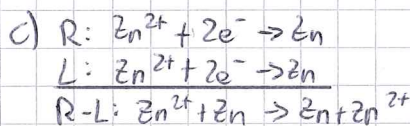 c) R: Zn²⁺ + 2e⁻ → Zn
L: Zn²⁺ + 2e⁻ → Zn
R-L: Zn²⁺ + Zn → Zn + Zn²⁺